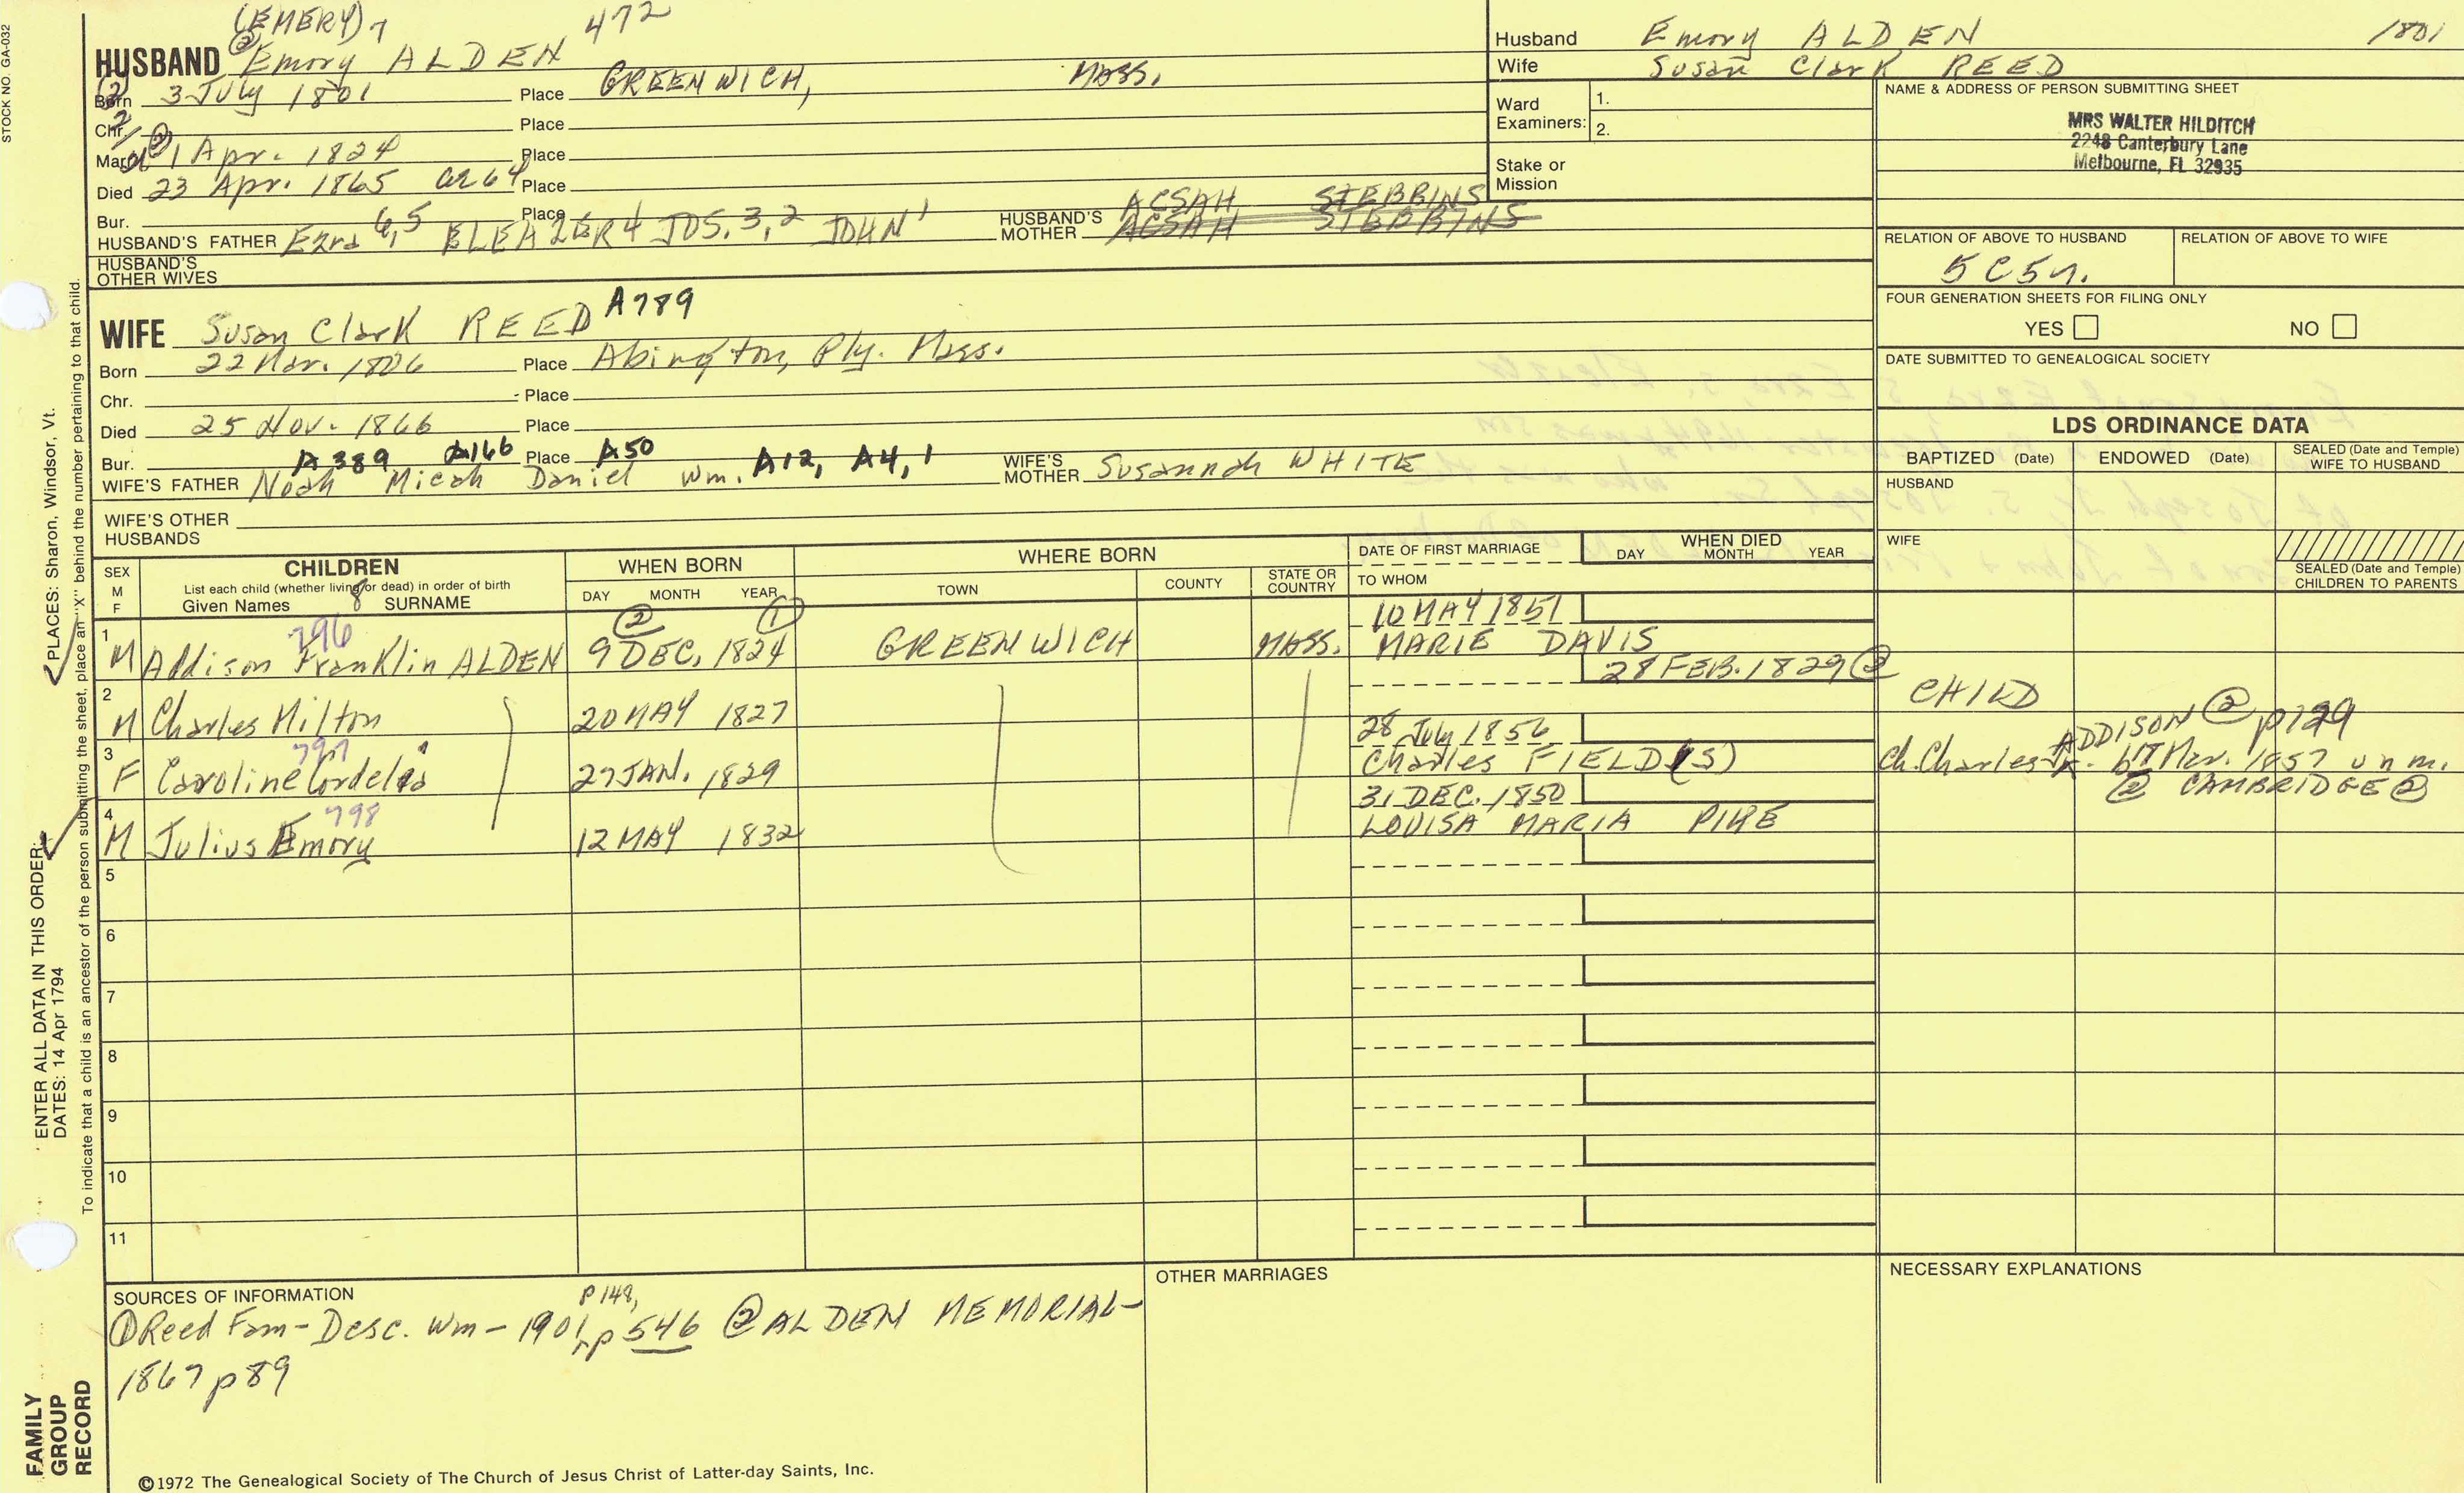 STOCK NO. GA-032
(EMERY) 7 472
HUSBAND ② Emory ALDEN
Born 3 July 1801 Place GREENWICH, MASS.
Chr. Place
Mar. 1 Apr. 1824 Place
Died 23 Apr. 1865 ae 64 Place
Bur. Place
HUSBAND'S FATHER Ezra 6,5 ELEAZER 4 JOS. 3,2 JOHN 1 HUSBAND'S MOTHER ACSAH STEBBINS
ACSAH STEBBINS
HUSBAND'S OTHER WIVES
WIFE Susan Clark REED A789
Born 22 Mar. 1806 Place Abington, Ply. Mass.
Chr. Place
Died 25 Nov. 1866 Place
Bur. Place
A389 A166 A50 A12, A4, 1
WIFE'S FATHER Noah Micah Daniel Wm. WIFE'S MOTHER Susannah WHITE
WIFE'S OTHER HUSBANDS
Husband Emory ALDEN 1801
Wife Susan Clark REED
Ward Examiners: 1. 2.
Stake or Mission
NAME & ADDRESS OF PERSON SUBMITTING SHEET
MRS WALTER HILDITCH
2248 Canterbury Lane
Melbourne, FL 32935
RELATION OF ABOVE TO HUSBAND RELATION OF ABOVE TO WIFE
5C5r.
FOUR GENERATION SHEETS FOR FILING ONLY
YES NO
DATE SUBMITTED TO GENEALOGICAL SOCIETY
LDS ORDINANCE DATA
BAPTIZED (Date) ENDOWED (Date) SEALED (Date and Temple) WIFE TO HUSBAND
HUSBAND
WIFE
SEALED (Date and Temple) CHILDREN TO PARENTS
SEX M F CHILDREN WHEN BORN WHERE BORN DATE OF FIRST MARRIAGE WHEN DIED
List each child (whether living or dead) in order of birth
Given Names 8 SURNAME DAY MONTH YEAR TOWN COUNTY STATE OR COUNTRY TO WHOM DAY MONTH YEAR
② ①
796 10 MAY 1851
1 M Addison Franklin ALDEN 9 DEC. 1824 GREENWICH MASS. MARIE DAVIS
28 FEB. 1829 ②
2 M Charles Milton 20 MAY 1827 CHILD
797 28 July 1856 ADDISON ② p129
3 F Caroline Cordelia 27 JAN. 1829 Charles FIELD(S) Ch. Charles b 17 Mar. 1857 unm.
@ CAMBRIDGE ②
798 31 DEC. 1850
4 M Julius Emory 12 MAY 1832 LOUISA MARIA PIKE
5
6
7
8
9
10
11
SOURCES OF INFORMATION
p 148,
① Reed Fam - Desc. Wm - 1901 p 546 ② ALDEN MEMORIAL -
1867 p 89
OTHER MARRIAGES
NECESSARY EXPLANATIONS
©1972 The Genealogical Society of The Church of Jesus Christ of Latter-day Saints, Inc.
FAMILY GROUP RECORD
ENTER ALL DATA IN THIS ORDER:
DATES: 14 Apr 1794
PLACES: Sharon, Windsor, Vt.
To indicate that a child is an ancestor of the person submitting the sheet, place an "X" behind the number pertaining to that child.